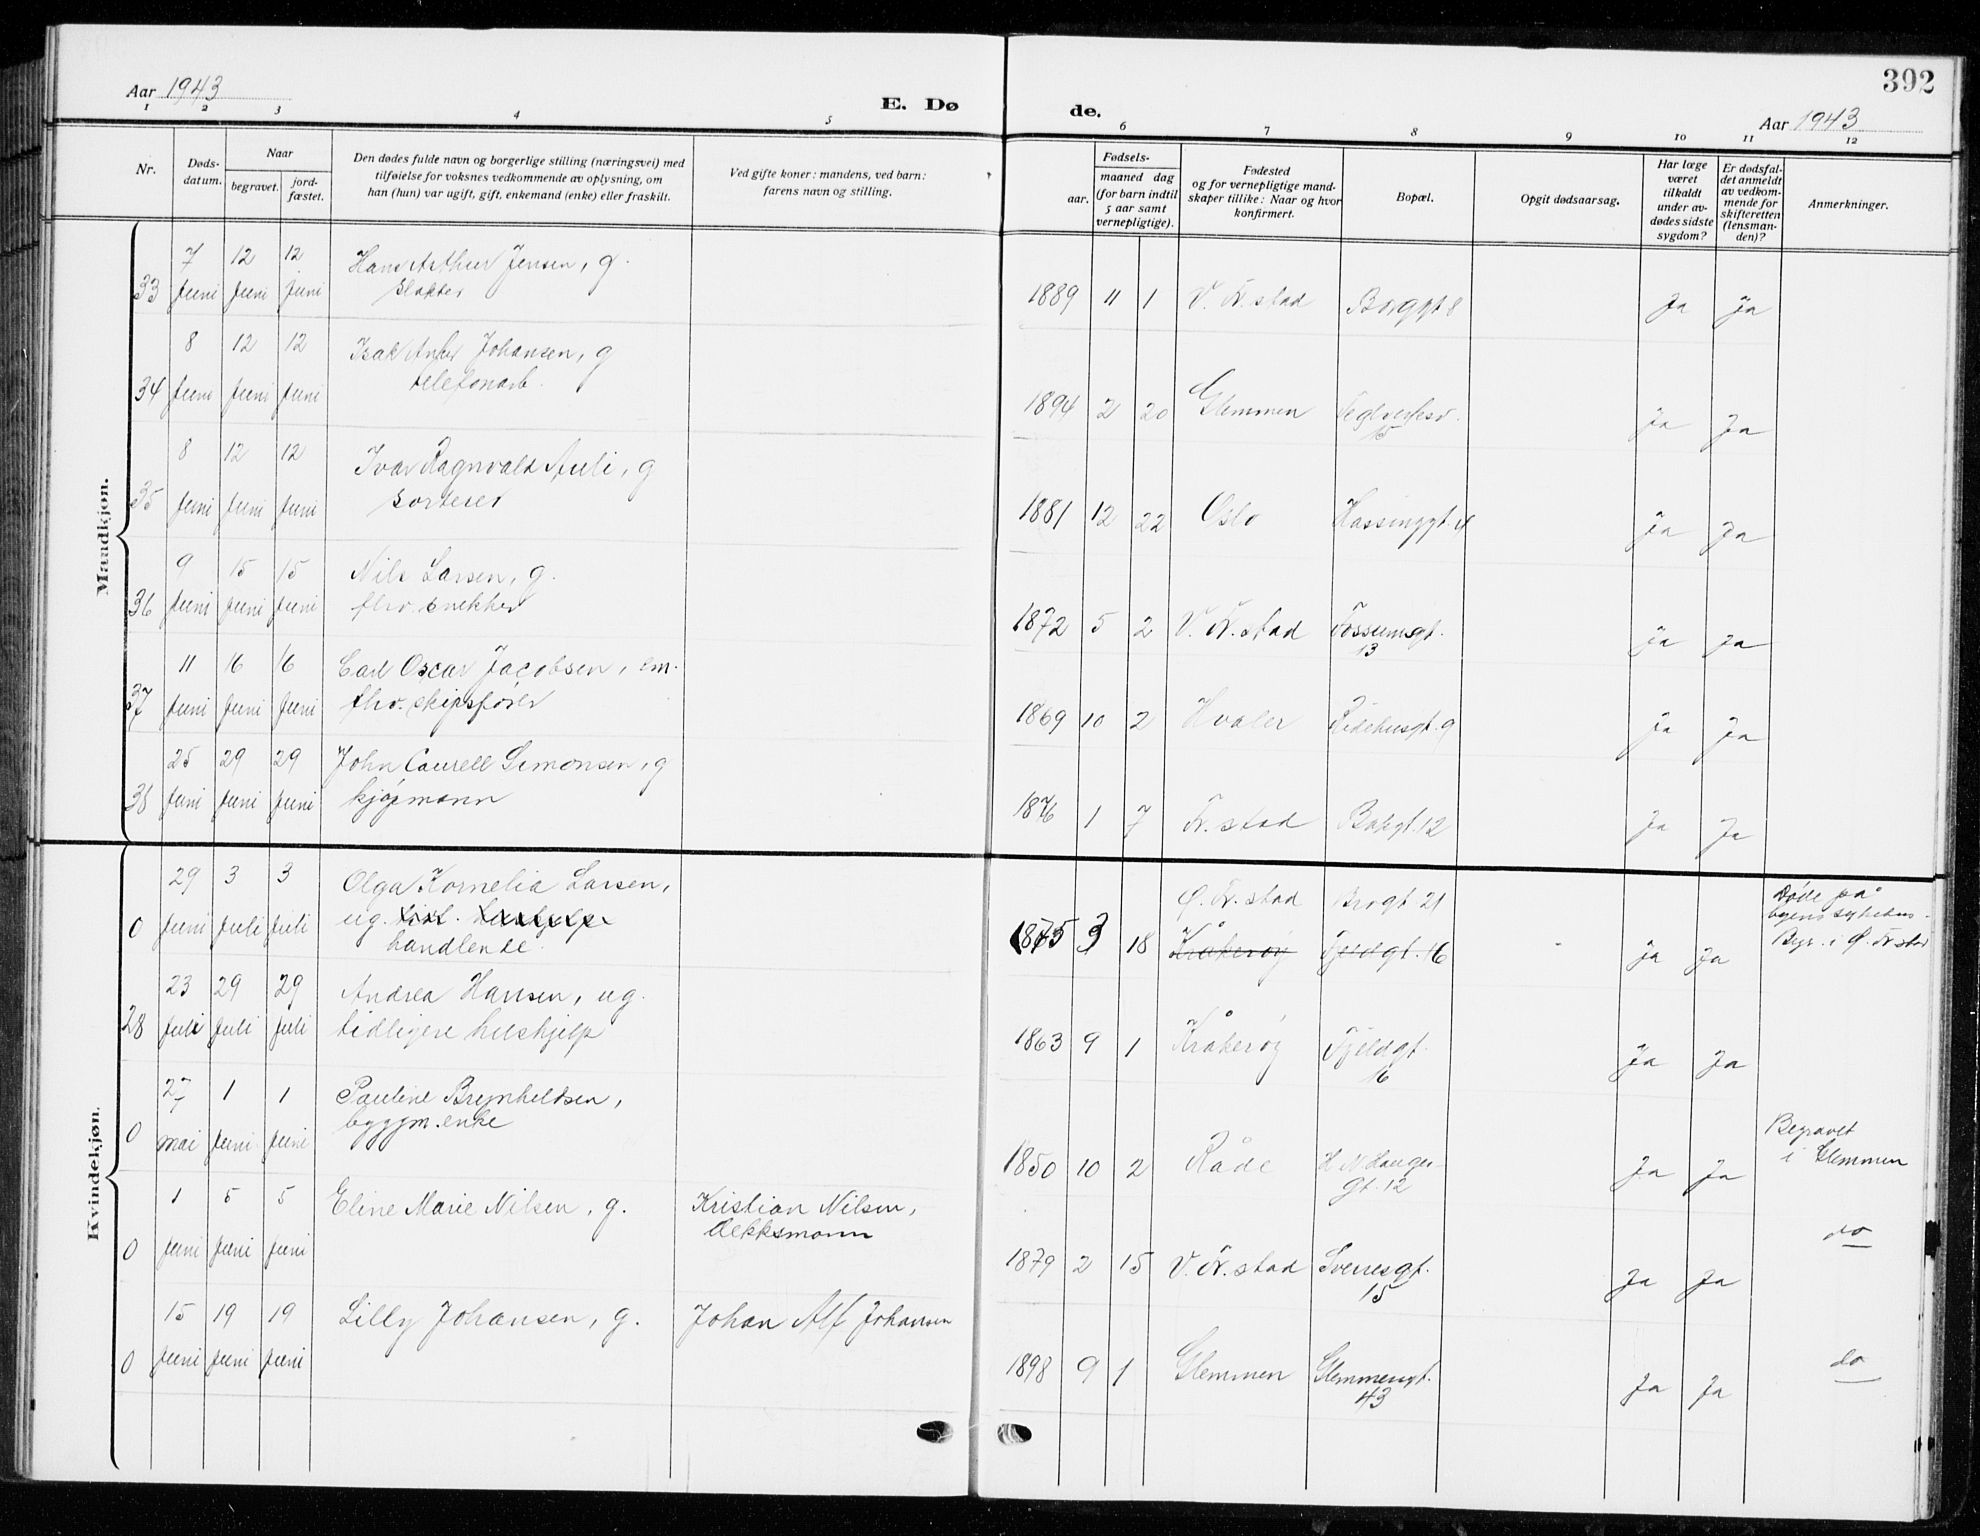 Aar 1943
E. Døde.
392
Aar 1943
1 2 3 4 5 6 7 8 9 10 11 12
Nr.
Døds-
datum.
Naar
begravet.
jord-
fæstet.
Den dødes fulde navn og borgerlige stilling (næringsvei) med
tilføielse for voksnes vedkommende av oplysning, om
han (hun) var ugift, gift, enkemand (enke) eller fraskilt.
Ved gifte koner: mandens, ved barn:
farens navn og stilling.
Fødsels-
aar.
maaned dag
(for barn indtil
5 aar samt
vernepligtige).
Fødested
og for vernepligtige mand-
skaper tillike: Naar og hvor
konfirmert.
Bopæl.
Opgit dødsaarsag.
Har læge
været
tilkaldt
under av-
dødes sidste
sygdom?
Er dødsfal-
det anmeldt
av vedkom-
mende for
skifteretten
(lensman-
den)?
Anmerkninger.
Mandkjøn.
33 7 Juni 12 Juni 12 Juni Hans Arthur Jensen, g.
slakter
1889 11 1 V. Fr.stad Borggt 8 Ja Ja
34 8 Juni 12 Juni 12 Juni Isak Anker Johansen, g
telefonarb.
1894 2 20 Glemmen Teglverksv.
15 Ja Ja
35 8 Juni 12 Juni 12 Juni Ivar Ragnvald Auli, g
sorterer
1881 12 22 Oslo Hassinggt. 4 Ja Ja
36 9 Juni 15 Juni 15 Juni Nils Larsen, g.
fhv. snekker
1872 5 2 V. Fr.stad Fossumsgt.
13 Ja Ja
37 11 Juni 16 Juni 16 Juni Carl Oscar Jacobsen, em.
fhv. skipsfører
1869 10 2 Hvaler Ridehusgt. 9 Ja Ja
38 25 Juni 29 Juni 29 Juni John Caurell Simonsen, g
kjøpmann
1876 1 7 Fr.stad Bakgt. 12 Ja Ja
Kvindekjøn.
0 29 Juni 3 Juli 3 Juli Olga Kornelia Larsen,
ug.
handlende.
1875 3 18 Ø. Fr.stad Brogt. 21
Kråkerøy Fjeldgt. 16 Ja Ja
Døde på
byens sykehus.
Begr. i Ø. Fr.stad
28 23 Juli 29 Juli 29 Juli Andrea Hansen, ug.
tidligere hushjelp
1863 9 1 Kråkerøy Fjeldgt.
16 Ja Ja
0 27 mai 1 Juni 1 Juni Pauline Brynhildsen,
byggm. enke
1850 10 2 Råde H N Hauges-
gt. 12 Ja Ja
Begravet
i Glemmen
0 1 Juni 5 Juni 5 Juni Eline Marie Nilsen, g. Kristian Nilsen,
dekksmann
1879 2 15 V. Fr.stad Sverresgt.
15 Ja Ja do
0 15 Juni 19 Juni 19 Juni Lilly Johansen, g. Johan Alf Johansen
1898 9 1 Glemmen Glemmengt.
43 Ja Ja do